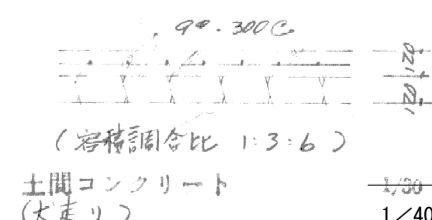 9φ-300C
120
120
(容積調合比 1:3:6)
土間コンクリート 1/30
(犬走り) 1/40